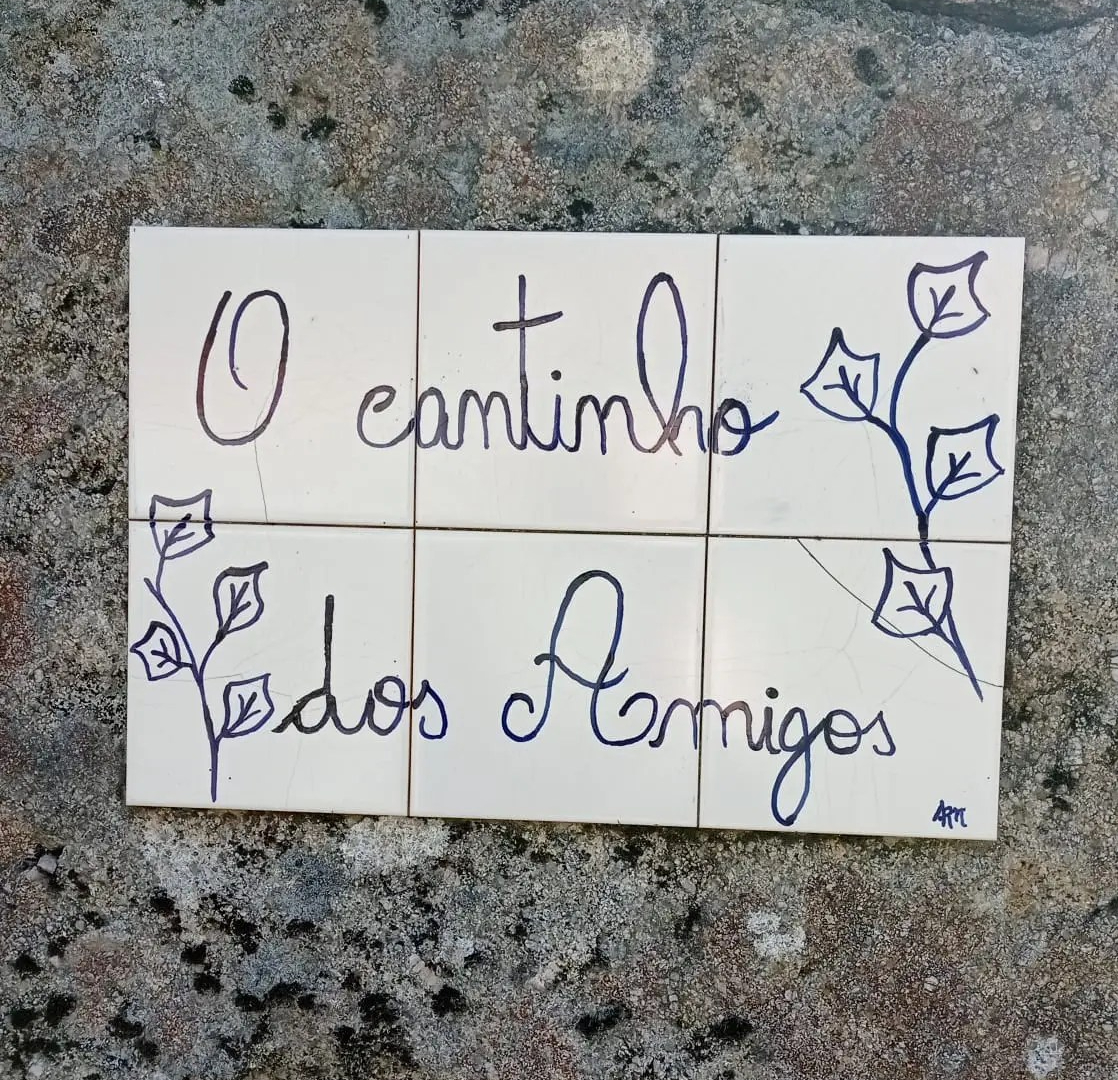 O cantinho
dos Amigos
ARM